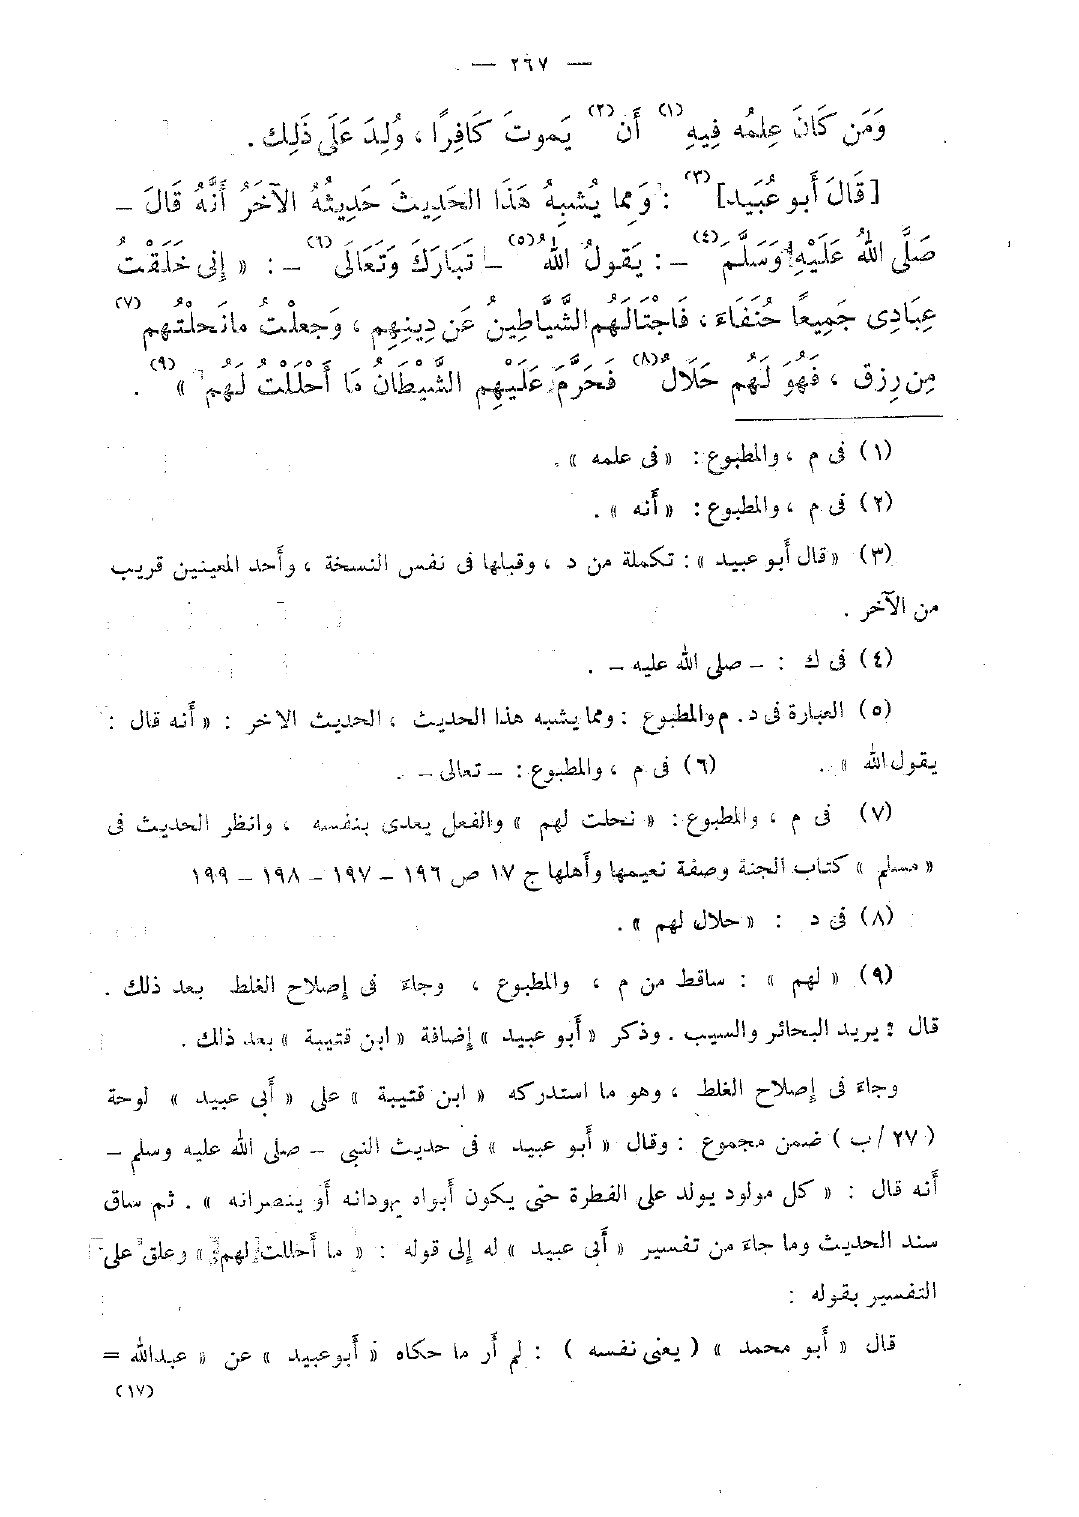 — ٢٦٧ —
وَمَن كَانَ عِلمُه فِيهِ (١) أَن (٢) يَموتَ كَافِرًا ، وُلِدَ عَلَى ذَلِك .
[قَالَ أَبو عُبَيد] (٣) : وَمِما يُشبِهُ هَذَا الحَدِيثَ حَدِيثُهُ الآخَرُ أَنَّهُ قَالَ –
صَلَّى اللهُ عَلَيْهِ وَسَلَّمَ (٤) – : يَقولُ اللهُ (٥) – تَبَارَكَ وَتَعَالَى (٦) – : « إِنى خَلَقْتُ
عِبَادِى جَمِيعًا حُنَفَاءَ ، فَاجْتَالَهُم الشَّيَاطِينُ عَن دِينِهِم ، وَجَعلْتُ مانَحلْتُهم (٧)
مِن رِزق ، فَهُوَ لَهُم حَلَالٌ (٨) فَحَرَّمَ عَلَيْهِم الشَّيْطَانُ مَا أَحْلَلْتُ لَهُم (٩) » .
(١) فى م ، والمطبوع : « فى علمه » .
(٢) فى م ، والمطبوع : « أنه » .
(٣) « قال أبو عبيد » : تكملة من د ، وقبلها فى نفس النسخة ، وأحد المعينين قريب
من الآخر .
(٤) فى ك : – صلى الله عليه – .
(٥) العبارة فى د. م والمطبوع : ومما يشبه هذا الحديث ، الحديث الاخر : « أنه قال :
يقول الله » . (٦) فى م ، والمطبوع : – تعالى – .
(٧) فى م ، والمطبوع : « نحلت لهم » والفعل يعدى بنفسه ، وانظر الحديث فى
« مسلم » كتاب الجنة وصفة نعيمها وأهلها ج ١٧ ص ١٩٦ – ١٩٧ – ١٩٨ – ١٩٩
(٨) فى د : « حلال لهم » .
(٩) « لهم » : ساقط من م ، والمطبوع ، وجاء فى إصلاح الغلط بعد ذلك .
قال : يريد البحائر والسيب . وذكر « أبو عبيد » إضافة « ابن قتيبة » بعد ذلك .
وجاء فى إصلاح الغلط ، وهو ما استدركه « ابن قتيبة » على « أبى عبيد » لوحة
( ٢٧ /ب ) ضمن مجموع : وقال « أبو عبيد » فى حديث النبى – صلى الله عليه وسلم –
أنه قال : « كل مولود يولد على الفطرة حتى يكون أبواه يهودانه أو ينصرانه » . ثم ساق
سند الحديث وما جاء من تفسير « أبى عبيد » له إلى قوله : « ما أحللت لهم » وعلق على
التفسير بقوله :
قال « أبو محمد » ( يعنى نفسه ) : لم أر ما حكاه « أبوعبيد » عن « عبدالله =
(١٧)